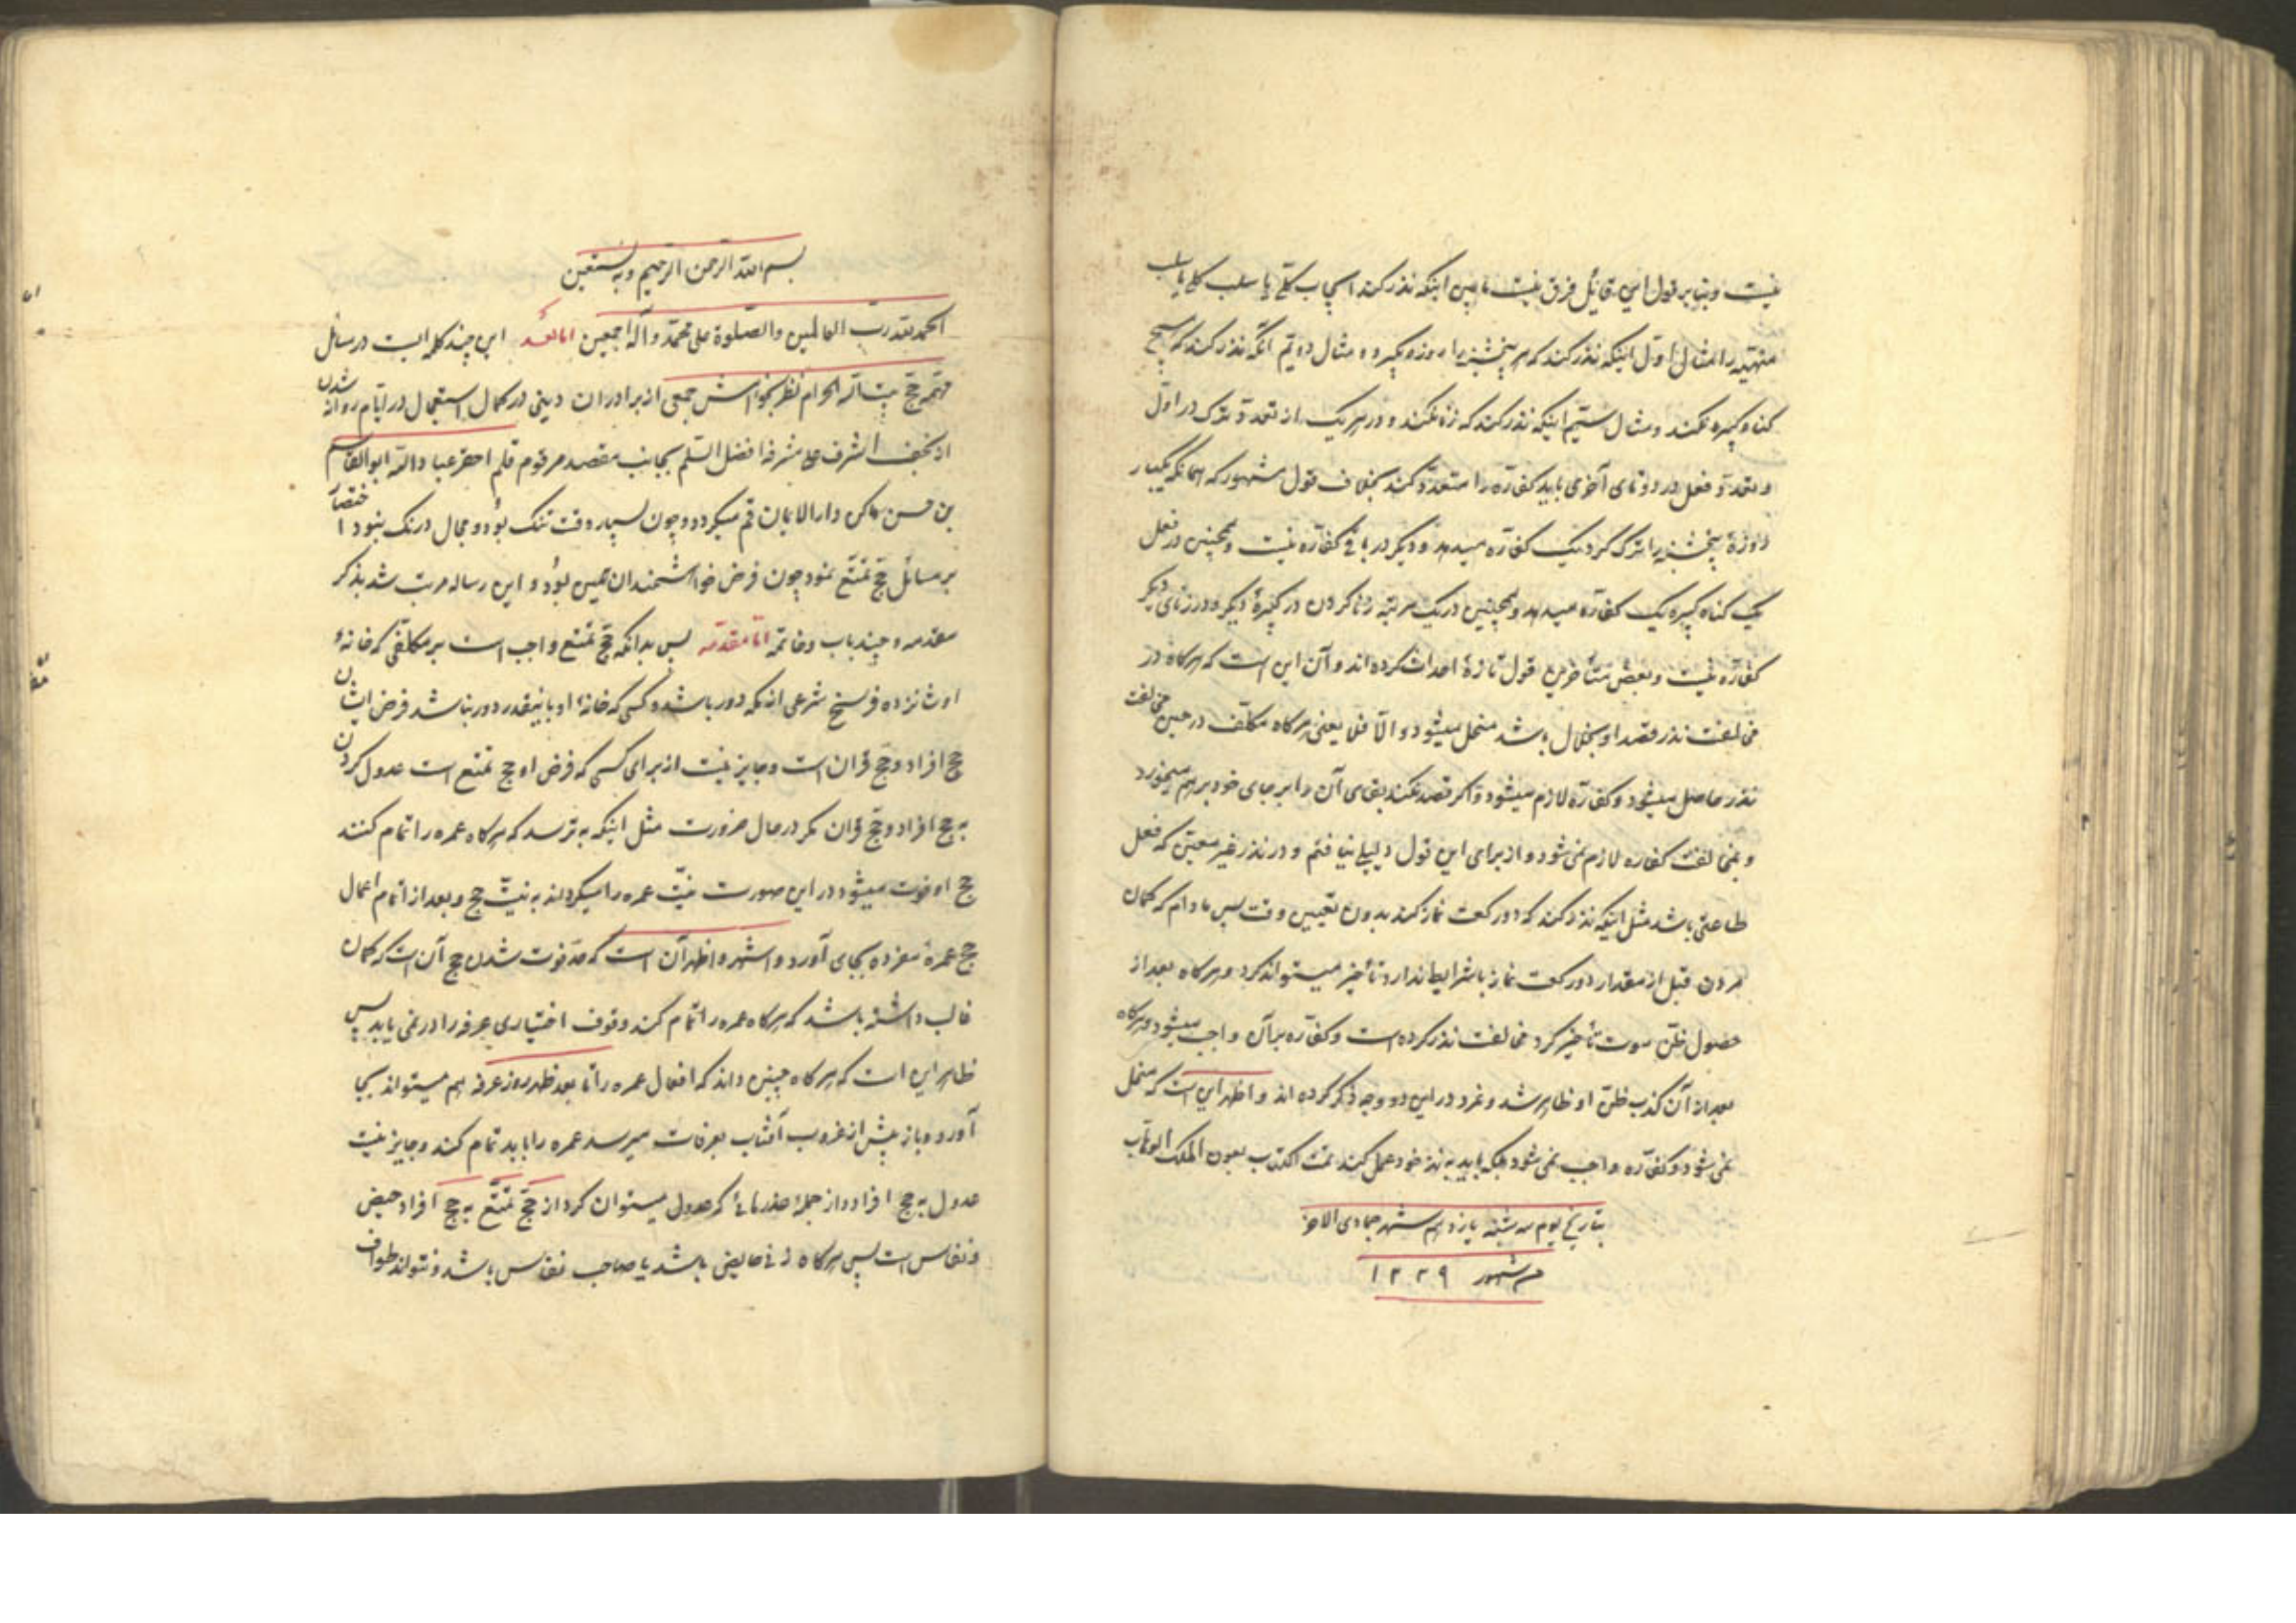 نیست و بنا بر قول این قائل فرق نیست مابین اینکه نذر کند ایجاب کلی یا سلب کلی یا سلب
منتهیه را مثال اول اینکه نذر کند که هر پنجشنبه را روزه بگیرد و مثال دویم آنکه نذر کند که هیچ
کناه کبیره نکند و مثال سیّم اینکه نذر کند که زنا نکند و در هر یک از تعدد ترک در اول
و تعدد فعل در دوتای آخری باید کفاره را متعدد کند بخلاف قول مشهور که همانکه یکبار
روزهٔ پنجشنبه را ترک کرد یک کفاره میدهد و دیگر در باقی کفاره نیست و همچنین در فعل
یک کناه کبیره یک کفاره میدهد و همچنین در یک مرتبه زنا کردن در کبیرهٔ دیگر و در زنای دیگر
کفاره نیست و بعض متأخرین قول تازهٔ احداث کرده اند و آن این است که هرکاه در
مخالفت نذر قصد او انحلال باشد منحل میشود و الّا فلا یعنی هرکاه مکلّف در حین مخالفت
نذر حاصل میشود و کفاره لازم میشود و اکر قصد نکند بقای آن را بر جای خود بر هم میخورد
و بمخالفت کفاره لازم نمی شود و از برای این قول دلیلی نیافتم و در نذر غیر معیّن که فعل
طاعتی باشد مثل اینکه نذر کند که دو رکعت نماز کند بدون تعیین وقت پس مادام که کمان
مردن قبل از مقدار دو رکعت نماز با شرایط ندارد تأخیر میتواند کرد و هرکاه بعد از
حصول ظنّ موت تأخیر کرد مخالفت نذر کرده است و کفاره بر آن واجب میشود و هرکاه
بعد از آن کذب ظنّ او ظاهر شد و غرد در این دو وجه ذکر کرده اند و اظهر این است که منحل
نمی شود و کفّاره واجب نمی شود بلکه باید به نذر خود عمل کند تمت الکتاب بعون الملک الوهاب
بتاریخ یوم سه شنبه یازدهم شهر جمادی الاخر
من شهور ۱۲۲۹
بسم الله الرحمن الرحیم وبه نستعین
الحمد لله ربّ العالمین والصّلوة علی محمّد وآله اجمعین امّا بعد این چند کلمه ایست در مسائل
مهمّه حجّ بیت الله الحرام نظر بخواهش جمعی از برادران دینی در کمال استعجال در ایام روانه شدن
از نجف اشرف علی مشرفه افضل السّلم بجانب مقصد مرقوم قلم احقر عباد الله ابو القاسم
بن حسن ساکن دار الایمان قم میکردد و چون بسیار وقت تنک بود و مجال درنک نبود اختصار
بر مسائل حجّ تمتّع نمود چون غرض خواهشمندان همین بود و این رساله مرتب شد بذکر
مقدمه و چند باب و خاتمه امّا مقدّمه پس بدانکه حجّ تمتّع واجب است بر مکلّفی که خانهٔ
او شانزده فرسخ شرعی از مکه دور باشد و کسی که خانهٔ او باینقدر دور نباشد فرض ایشان
حج افراد و حجّ قران است و جایز نیست از برای کسی که فرض او حج تمتع است عدول کردن
به حج افراد و حجّ قران مکر در حال ضرورت مثل اینکه به ترسد که هرکاه عمره را تمام کند
حج او فوت میشود در این صورت نیّت عمره را میکرداند به نیّت حج و بعد از اتمام اعمال
حج عمره مفرده بجای آورد و اشهر و اظهر آن است که حدّ فوت شدن حج آن است که کمان
غالب داشته باشد که هرکاه عمره را تمام کند وقوف اختیاری عرفه را در نمی یابد پس
ظاهر این است که هرکاه چنین داند که افعال عمره را تا بعد ظهر روز عرفه هم میتواند بجا
آورد و باز پیش از غروب آفتاب بعرفات میرسد عمره را باید تمام کند و جایز نیست
عدول به حج افراد و از جملهٔ عذرهائی که عدول میتوان کرد از حجّ تمتّع به حج افراد حیض
و نفاس است پس هرکاه زنی حایض باشد یا صاحب نفاس باشد و نتواند طواف